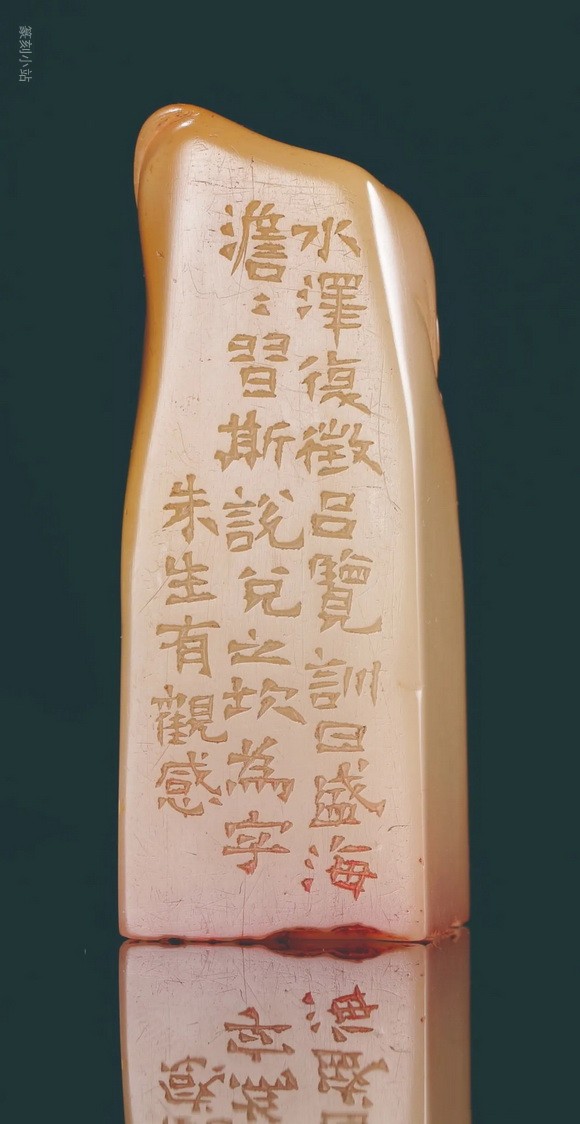 水澤復徵吕覽訓曰盛海
澹〻習斯說兌之坎為字
朱生有觀感
篆刻小站